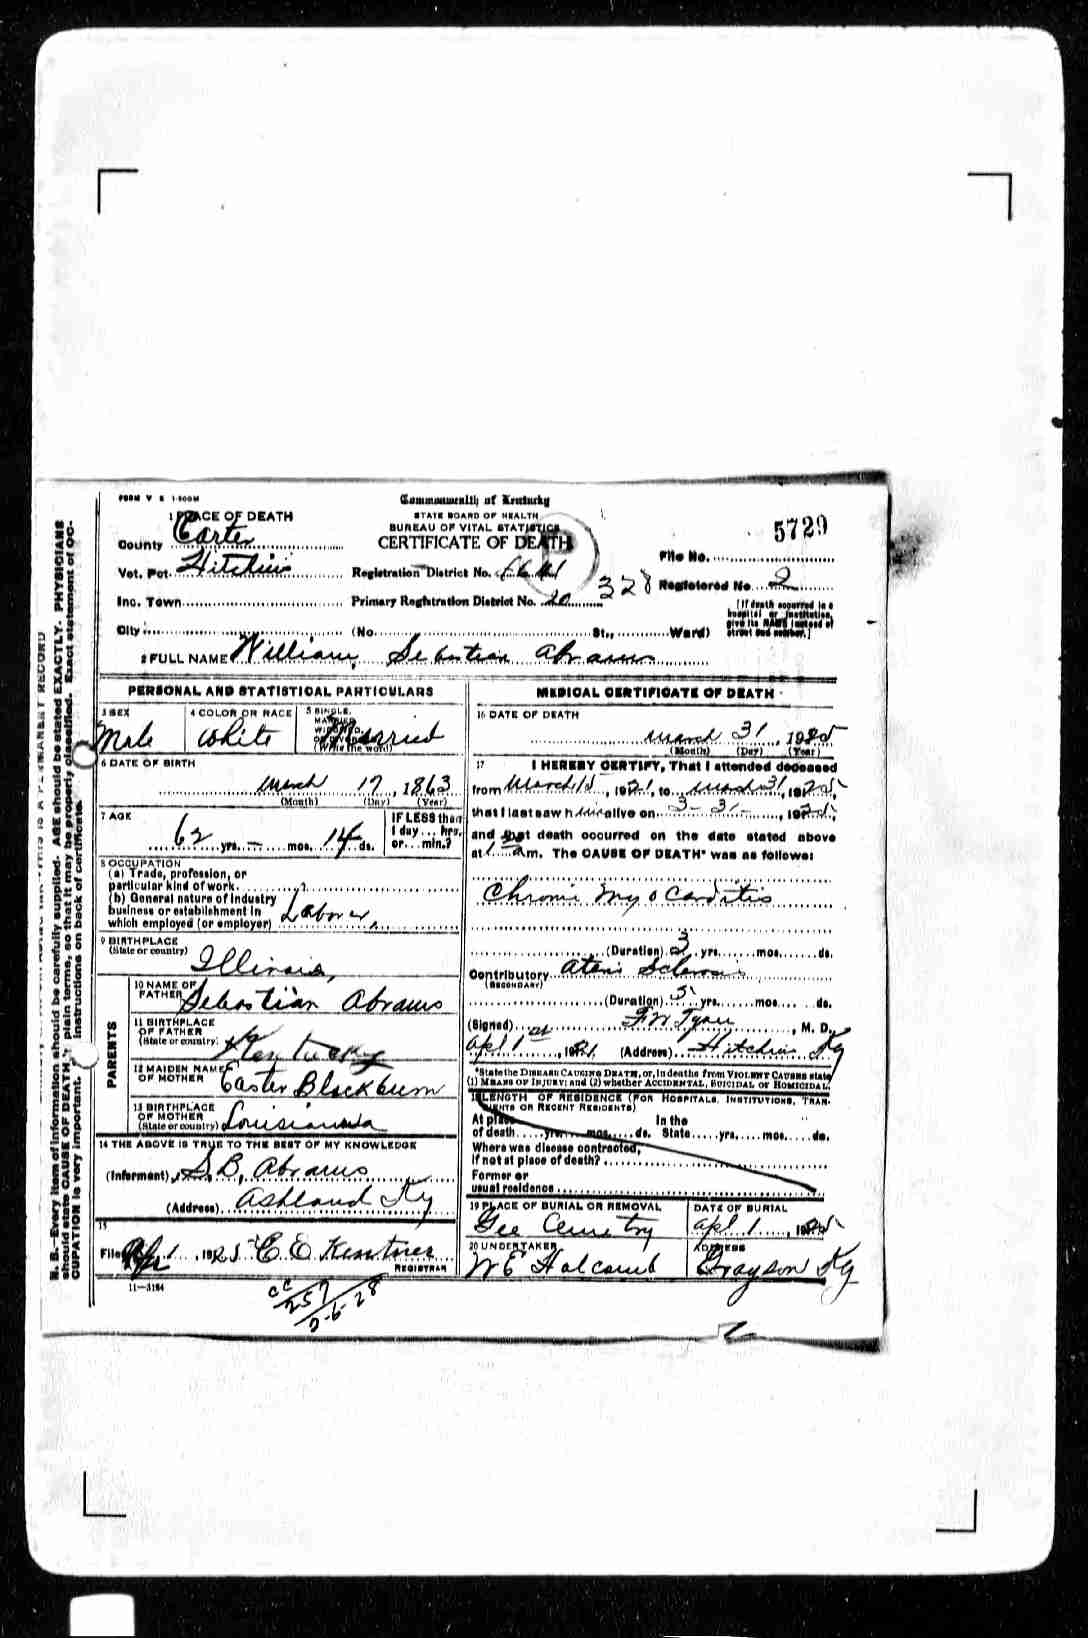 FORM V S 1-500M
Commonwealth of Kentucky
STATE BOARD OF HEALTH
BUREAU OF VITAL STATISTICS
CERTIFICATE OF DEATH
5729
1 PLACE OF DEATH
County Carter
Vot. Pct. Hitchins
Inc. Town
City
Registration District No.
Primary Registration District No. 20
328
File No.
Registered No. 2
[If death occurred in a hospital or institution, give its NAME instead of street and number.]
(No. St., Ward)
2 FULL NAME William Sebastian Abrams
PERSONAL AND STATISTICAL PARTICULARS
3 SEX
Male
4 COLOR OR RACE
White
5 SINGLE, MARRIED, WIDOWED, OR DIVORCED (Write the word)
Married
6 DATE OF BIRTH
March 17, 1863
(Month) (Day) (Year)
7 AGE
62 yrs. — mos. 14 ds.
IF LESS than 1 day... hrs. or... min.?
8 OCCUPATION
(a) Trade, profession, or
particular kind of work
(b) General nature of industry
business or establishment in
which employed (or employer) Laborer
9 BIRTHPLACE
(State or country) Illinois,
PARENTS
10 NAME OF FATHER Sebastian Abrams
11 BIRTHPLACE OF FATHER (State or country) Kentucky
12 MAIDEN NAME OF MOTHER Easter Blackburn
13 BIRTHPLACE OF MOTHER (State or country) Louisianna
14 THE ABOVE IS TRUE TO THE BEST OF MY KNOWLEDGE
(Informant) S. B. Abrams
(Address) Ashland Ky
15
Filed Apr 1 1925 E E
REGISTRAR
11—3184
MEDICAL CERTIFICATE OF DEATH
16 DATE OF DEATH
March 31, 1925
(Month) (Day) (Year)
17 I HEREBY CERTIFY, That I attended deceased
from March 15, 1921, to March 31, 1925,
that I last saw him alive on 3-31-, 1925,
and that death occurred on the date stated above
at am. The CAUSE OF DEATH* was as follows:
Chronic Myocarditis
(Duration) 3 yrs. mos. ds.
Contributory Sclerosis
(SECONDARY)
(Duration) 5 yrs. mos. ds.
(Signed) , M. D.
Apl 1st, 19 (Address) Hitchins Ky
*State the DISEASE CAUSING DEATH, or, in deaths from VIOLENT CAUSES state
(1) MEANS OF INJURY; and (2) whether ACCIDENTAL, SUICIDAL or HOMICIDAL.
18 LENGTH OF RESIDENCE (FOR HOSPITALS, INSTITUTIONS, TRANSIENTS OR RECENT RESIDENTS)
At place of death yrs. mos. ds. In the State yrs. mos. ds.
Where was disease contracted,
If not at place of death?
Former or
usual residence
19 PLACE OF BURIAL OR REMOVAL
Gee Cemetry
DATE OF BURIAL
Apl 1, 1925
20 UNDERTAKER
W E Halcomb
ADDRESS
Grayson Ky
cc
257
2-6-28
N. B. Every item of information should be carefully supplied. AGE should be stated EXACTLY. PHYSICIANS
should state CAUSE OF DEATH in plain terms, so that it may be properly classified. Exact statement of OC-
CUPATION is very important. instructions on back of certificate.